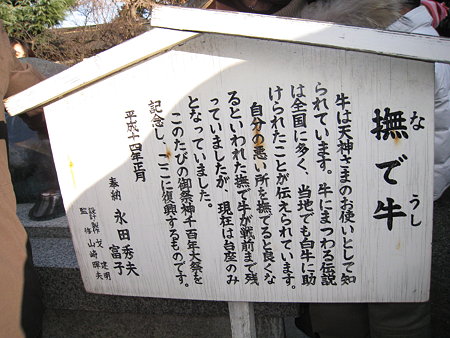 撫で牛
な うし
牛は天神さまのお使いとして知
られています。牛にまつわる伝説
は全国に多く、当地でも白牛に助
けられたことが伝えられています。
自分の悪い所を撫でると良くな
るといわれた撫で牛が戦前まで残
っていましたが、現在は台座のみ
となっていました。
このたびの御祭神千百年大祭を
記念し、ここに復興するものです。
平成十四年正月
奉納 永田秀夫
富子
監修 山崎